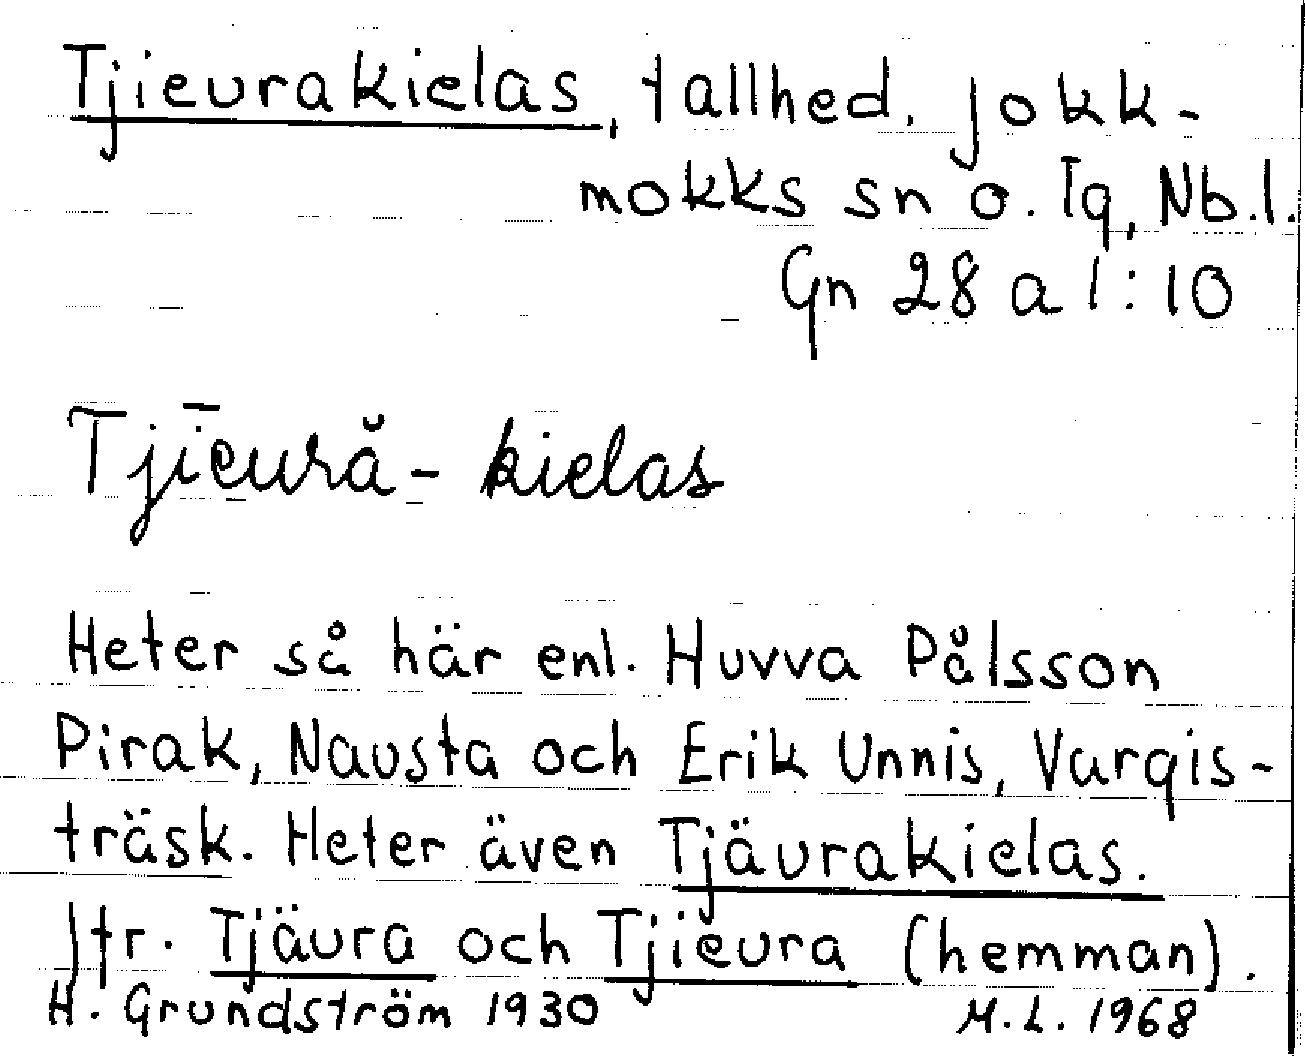 Tjieurakielas, tallhed. Jokk-
mokks sn o. lg, Nb.l.
Gn 28 a 1:10
Tjīeură-kielas
Heter så här enl. Huvva Pålsson
Pirak, Nausta och Erik Unnis, Vargis-
träsk. Heter även Tjäurakielas.
Jfr. Tjäura och Tjieura (hemman).
H. Grundström 1930 M.L. 1968